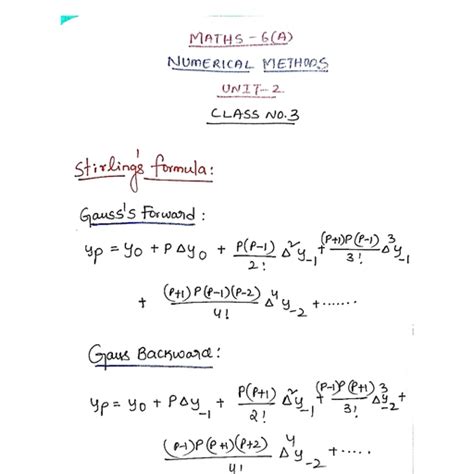 MATHS - 6(A)
NUMERICAL METHODS
UNIT-2
CLASS NO.3
Stirling's formula:
Gauss's Forward:
yp = y₀ + PΔy₀ + P(P-1)/2! Δ²y₋₁ + (P+1)P(P-1)/3! Δ³y₋₁
+ (P+1)P(P-1)(P-2)/4! Δ⁴y₋₂ + ......
Gaus Backward:
yp = y₀ + PΔy₋₁ + P(P+1)/2! Δ²y₋₁ + (P-1)P(P+1)/3! Δ³y₋₂ +
(P-1)P(P+1)(P+2)/4! Δ⁴y₋₂ + .....